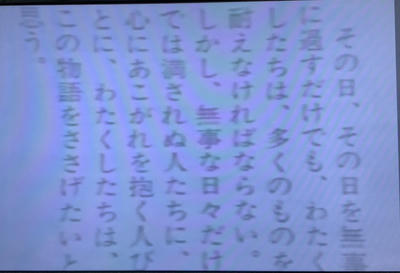 その日、その日を無事
に過すだけでも、わたく
したちは、多くのものを
耐えなければならない。
しかし、無事な日々だけ
では満されぬ人たちに、
心にあこがれを抱く人び
とに、わたくしたちは、
この物語をささげたいと
思う。